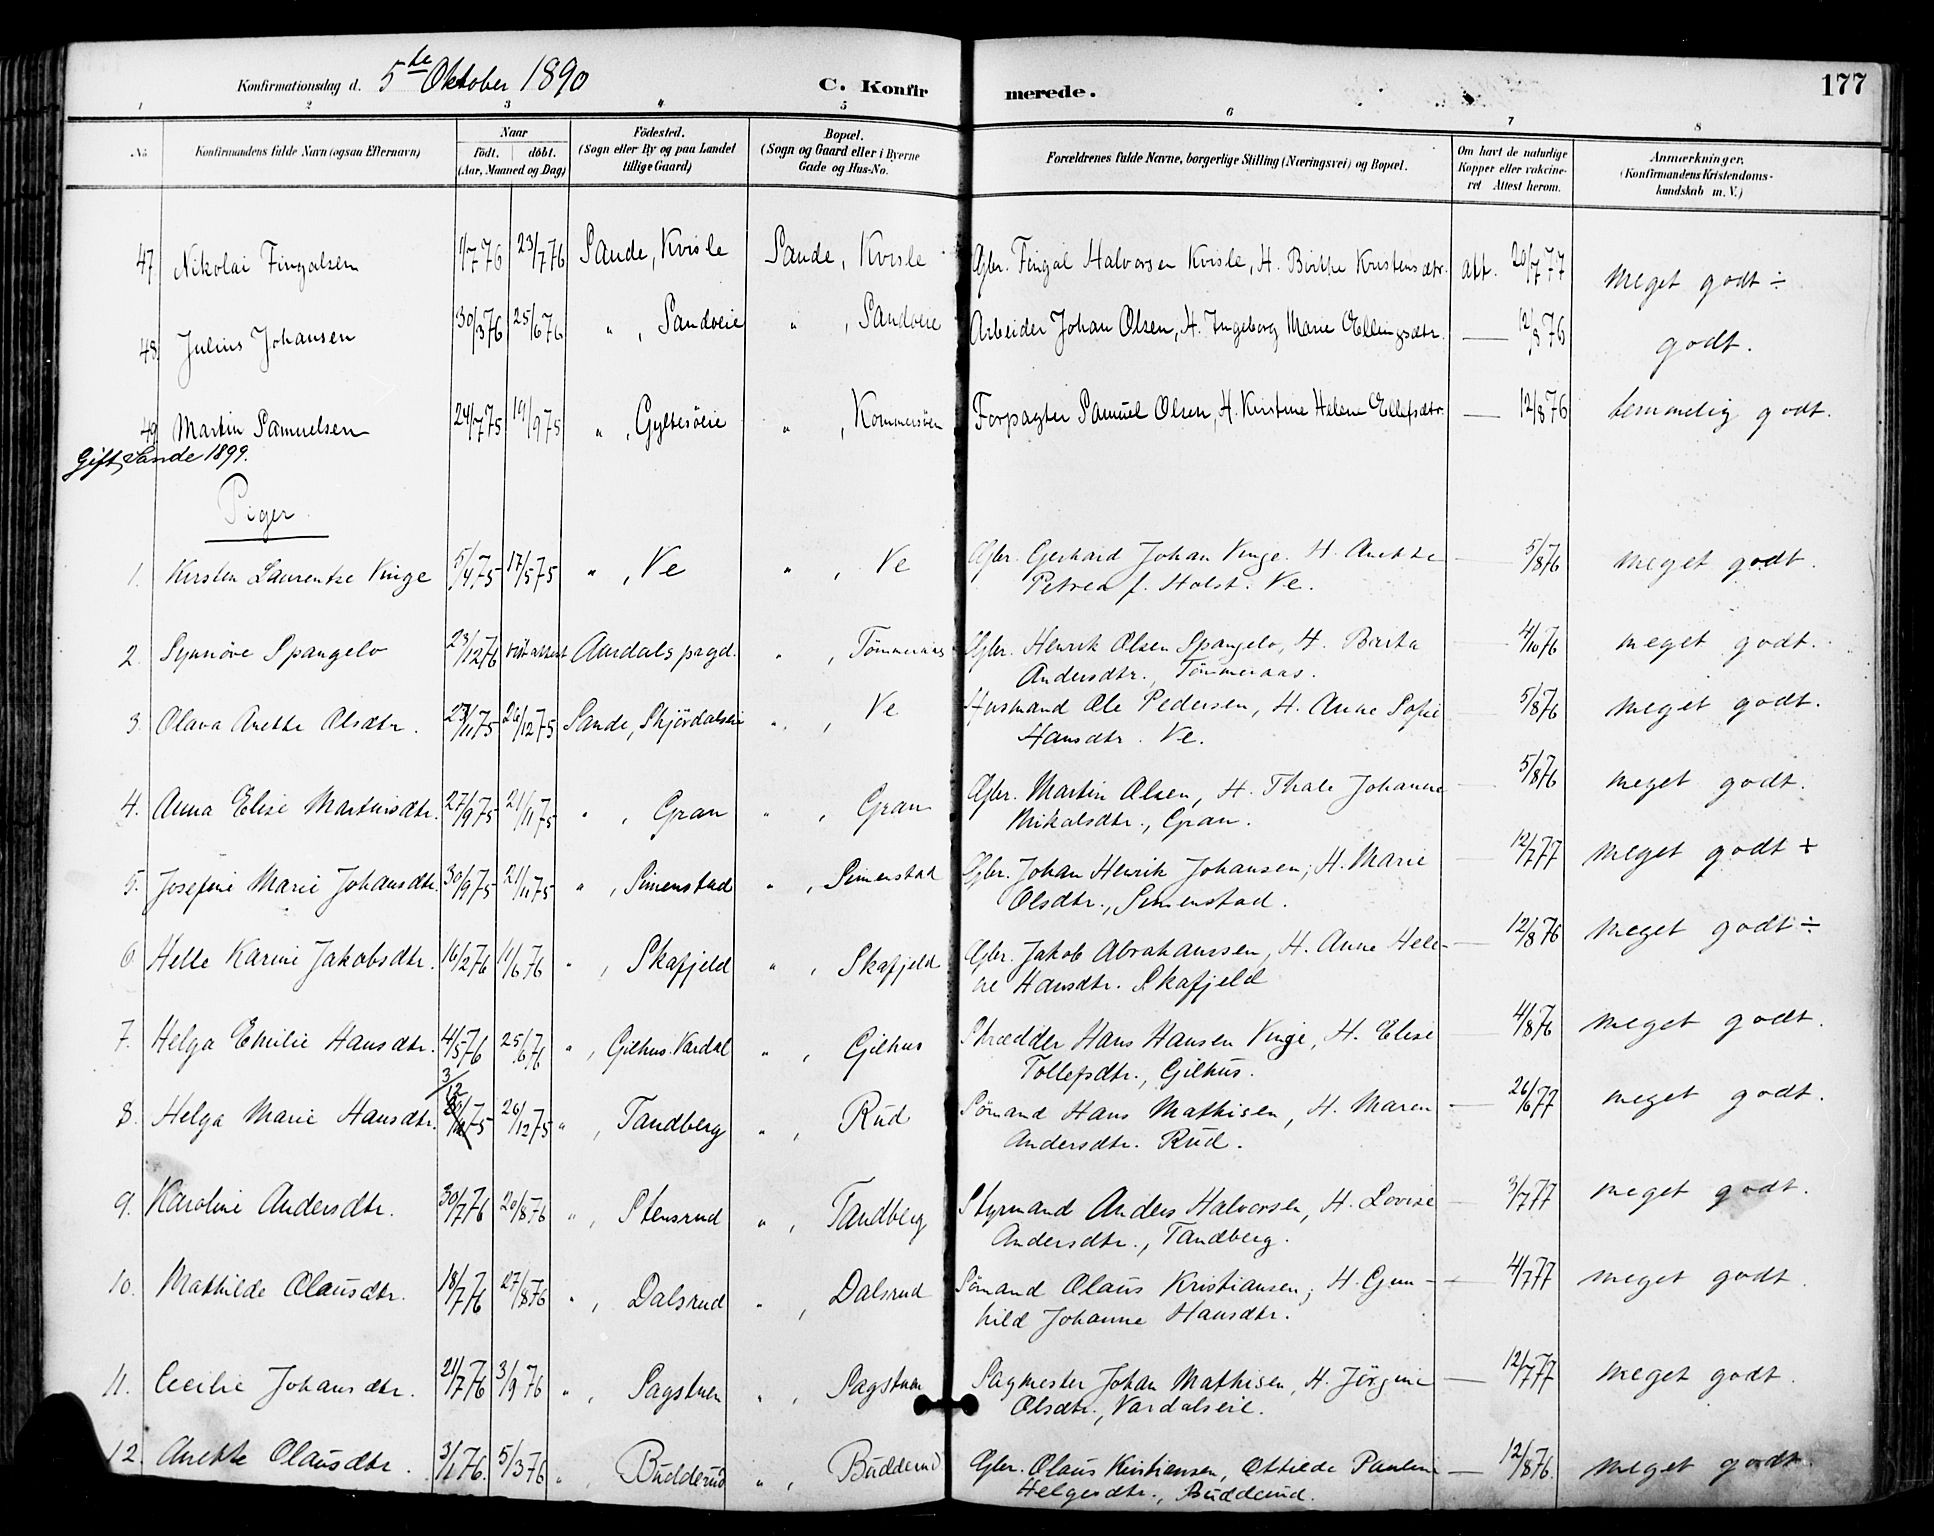 Konfirmationsdag d. 5te Oktober 1890 C. Konfirmerede. 177
1 2 3 4 5 6 7 8
No. Konfirmandens fulde Navn (ogsaa Efternavn) Naar födt. döbt. (Aar, Maaned og Dag) Födested. (Sogn eller By og paa Landet tillige Gaard) Bopæl. (Sogn og Gaard eller i Byerne Gade og Hus-No. Forældrenes fulde Navne, borgerlige Stilling (Næringsvei) og Bopæl. Om havt de naturlige Kopper eller vakcineret Attest herom. Anmærkninger. (Konfirmandens Kristendomskundskab m. V.)
47 Nikolai Fingalsen 1/7 76 23/7 76 Sande, Kvisle Sande, Kvisle Gbr. Fingal Halvorsen Kvisle, H. Birthe Kristensdtr. att. 20/7 77 meget godt ÷
48 Julius Johansen 30/3 76 25/6 76 " , Sandveie " , Sandveie Arbeider Johan Olsen, H. Ingeborg Marie Ellingsdtr. — 12/8 76 godt.
49 Martin Samuelsen 24/7 75 19/9 75 " , Gyltesöeie " , Kommersöen Forpagter Samuel Olsen, H. Kirstine Helene Ellefsdtr. — 12/8 76 temmelig godt.
Gift, Sande 1899.
Piger
1. Kirsten Laurentze Vinge 5/4 75 17/5 75 " , Ve " , Ve Gbr. Gerhard Johan Vinge. H. Anette — 5/8 76 meget godt.
Petrea f. Holst. Ve.
2. Synnöve Spangelo 23/12 76 Aardals prgd. " , Tömmeraas Gbr. Henrik Olsen Spangelo, H. Barta — 4/10 76 meget godt.
Andersdtr., Tömmeraas.
3. Olava Anette Olsdtr. 27/11 75 26/12 75 Sande, Skjördalseie " , Ve Husmand Ole Pedersen, H. Anne Sofie — 5/8 76 meget godt.
Hansdtr. Ve.
4. Anna Elise Martinsdtr. 27/9 75 21/11 75 " , Gran " , Gran Gbr. Martin Olsen, H. Thale Johanne — 5/8 76 meget godt.
Mikalsdtr., Gran.
5. Josefine Marie Johansdtr. 30/9 75 21/11 75 " , Simenstad " , Simenstad Gbr. Johan Henrik Johansen, H. Marie — 12/7 77 meget godt +
Olsdtr., Simenstad.
6. Helle Karine Jakobsdtr. 16/2 76 11/6 76 " , Skafjeld " , Skafjeld Gbr. Jakob Abrahamssen, H. Anne Hele- — 12/8 76 meget godt ÷
ne Hansdtr. Skafjeld
7. Helga Emilie Hansdtr. 4/5 76 25/6 76 " , Gilhus Vardal " , Gilhus Skrædder Hans Hansen Vinge, H. Elise — 4/8 76 meget godt.
Tollefsdtr., Gilhus.
8. Helga Marie Hansdtr. 3/12 75 26/12 75 " , Tandberg " , Rud Sömand Hans Mathisen, H. Maren — 26/6 77 meget godt.
Andersdtr. Rud.
9. Karoline Andersdtr. 30/7 76 20/8 76 " , Stensrud " , Tandberg Styrmand Anders Halvorsen, H. Lovise — 3/7 77 meget godt.
Andersdtr., Tandberg.
10. Mathilde Olausdtr. 18/7 76 27/8 76 " , Dalsrud " , Dalsrud Sömand Olaus Kristiansen, H. Gun- — 4/7 77 meget godt.
hild Johanne Hansdtr.
11. Cecilie Johansdtr. 21/7 76 3/9 76 " , Sagstuen " , Sagstuen Sagmester Johan Mathisen, H. Jörgine — 12/7 77 meget godt.
Olsdtr., Vardalseie.
12. Anette Olausdtr. 3/1 76. 5/3 76 " , Budderud " , Budderud Gbr. Olaus Kristiansen, Ottilde Pauline — 12/8 76. meget godt.
Helgesdtr., Budderud.